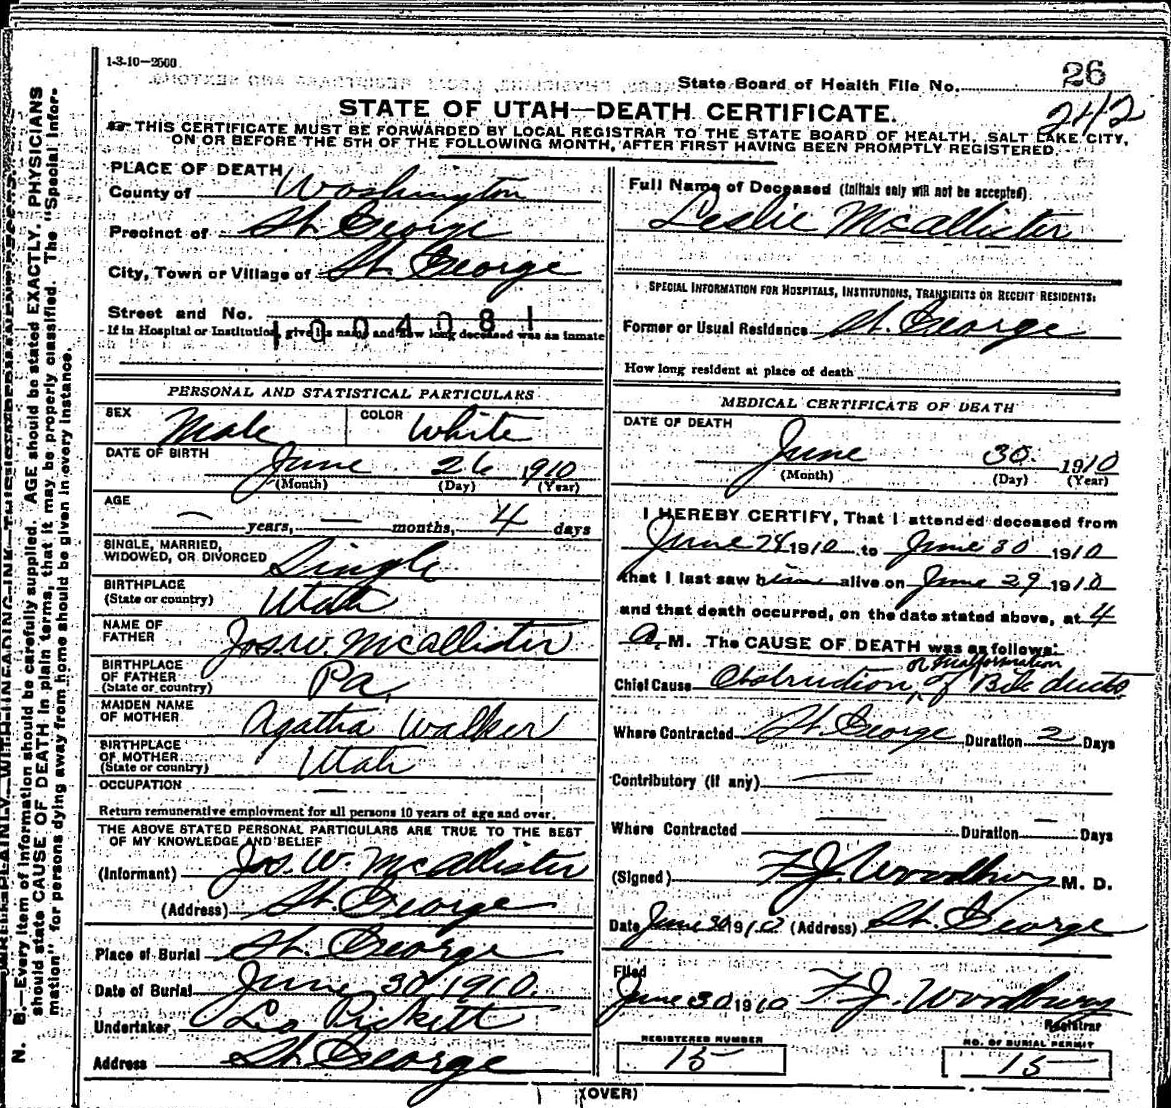 1-3-10—2500
State Board of Health File No. 26
242
STATE OF UTAH—DEATH CERTIFICATE.
THIS CERTIFICATE MUST BE FORWARDED BY LOCAL REGISTRAR TO THE STATE BOARD OF HEALTH, SALT LAKE CITY,
ON OR BEFORE THE 5TH OF THE FOLLOWING MONTH, AFTER FIRST HAVING BEEN PROMPTLY REGISTERED.
PLACE OF DEATH
County of Washington
Precinct of St. George
City, Town or Village of St. George
Street and No.
1004081
If in Hospital or Institution, give its name and how long deceased was an inmate
PERSONAL AND STATISTICAL PARTICULARS
SEX Male COLOR White
DATE OF BIRTH June 26 1910
(Month) (Day) (Year)
AGE
— years, — months, 4 days
SINGLE, MARRIED,
WIDOWED, OR DIVORCED Single
BIRTHPLACE
(State or country) Utah
NAME OF
FATHER Jos. W. McAllister
BIRTHPLACE
OF FATHER
(State or country) Pa.
MAIDEN NAME
OF MOTHER Agatha Walker
BIRTHPLACE
OF MOTHER
(State or country) Utah
OCCUPATION —
Return remunerative employment for all persons 10 years of age and over.
THE ABOVE STATED PERSONAL PARTICULARS ARE TRUE TO THE BEST
OF MY KNOWLEDGE AND BELIEF
(Informant) Jos. W. McAllister
(Address) St. George
Place of Burial St. George
Date of Burial June 30, 1910.
Undertaker, Leo Pickett
Address St. George
Full Name of Deceased (Initials only will not be accepted)
Leslie McAllister
SPECIAL INFORMATION FOR HOSPITALS, INSTITUTIONS, TRANSIENTS OR RECENT RESIDENTS:
Former or Usual Residence St. George
How long resident at place of death
MEDICAL CERTIFICATE OF DEATH
DATE OF DEATH
June 30 1910
(Month) (Day) (Year)
I HEREBY CERTIFY, That I attended deceased from
June 29 1910 to June 30 1910
that I last saw him alive on June 29 1910
and that death occurred, on the date stated above, at 4
A. M. The CAUSE OF DEATH was as follows:
or malformation
Chief Cause Obstruction, of Bile ducts
Where Contracted St. George Duration 2 Days
Contributory (if any) —
Where Contracted — Duration — Days
(Signed) F. J. Woodbury M. D.
Date June 30 1910 (Address) St. George
Filed
June 30 1910 F. J. Woodbury
Registrar
REGISTERED NUMBER
15
NO. OF BURIAL PERMIT
15
(OVER)
N. B.—Every item of information should be carefully supplied. AGE should be stated EXACTLY. PHYSICIANS
should state CAUSE OF DEATH in plain terms, that it may be properly classified. The "Special Infor-
mation" for persons dying away from home should be given in every instance.